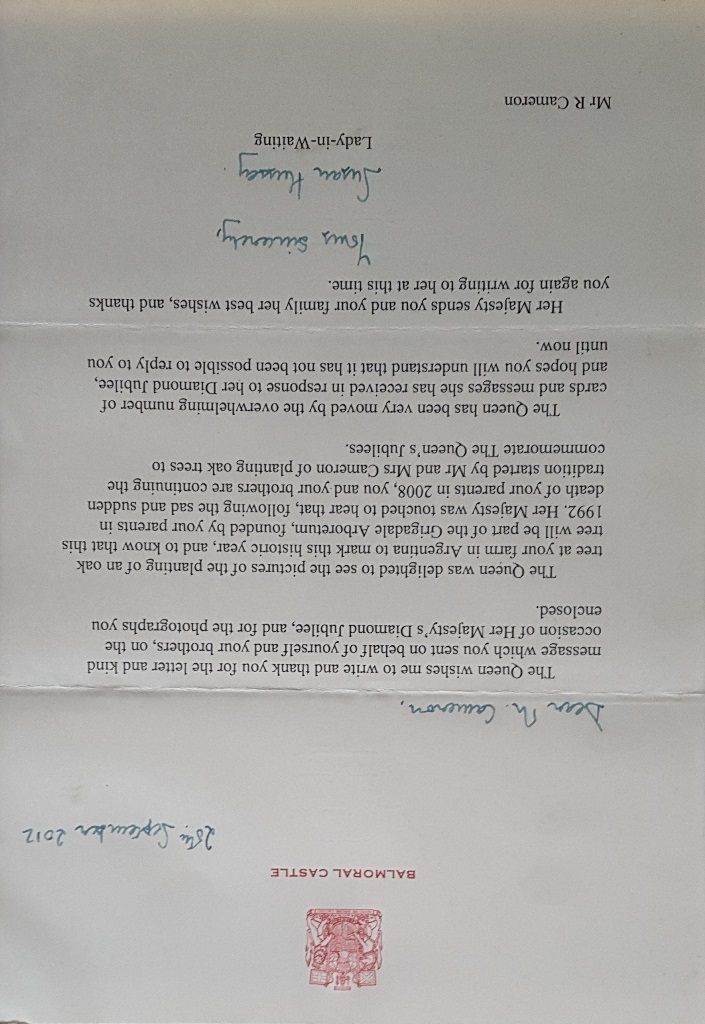 BALMORAL CASTLE
25th September 2012
Dear Mr. Cameron,
The Queen wishes me to write and thank you for the letter and kind
message which you sent on behalf of yourself and your brothers, on the
occasion of Her Majesty's Diamond Jubilee, and for the photographs you
enclosed.
The Queen was delighted to see the pictures of the planting of an oak
tree at your farm in Argentina to mark this historic year, and to know that this
tree will be part of the Grigadale Arboretum, founded by your parents in
1992. Her Majesty was touched to hear that, following the sad and sudden
death of your parents in 2008, you and your brothers are continuing the
tradition started by Mr and Mrs Cameron of planting oak trees to
commemorate The Queen's Jubilees.
The Queen has been very moved by the overwhelming number of
cards and messages she has received in response to her Diamond Jubilee,
and hopes you will understand that it has not been possible to reply to you
until now.
Her Majesty sends you and your family her best wishes, and thanks
you again for writing to her at this time.
Yours sincerely,
Susan Hussey.
Lady-in-Waiting
Mr R Cameron